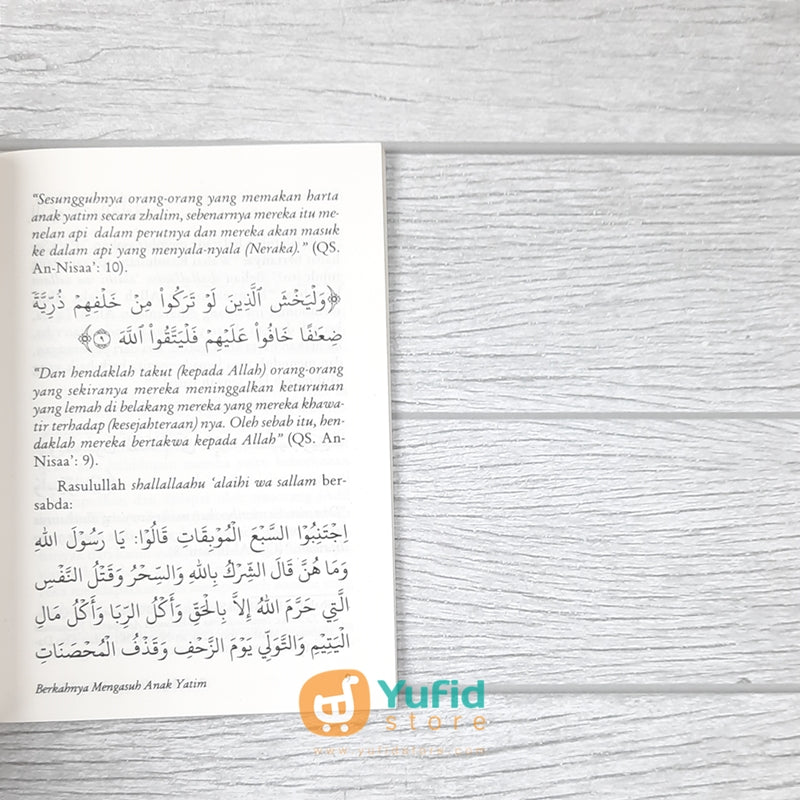 "Sesungguhnya orang-orang yang memakan harta
anak yatim secara zhalim, sebenarnya mereka itu me-
nelan api dalam perutnya dan mereka akan masuk
ke dalam api yang menyala-nyala (Neraka)." (QS.
An-Nisaa': 10).
﴿وَلْيَخْشَ ٱلَّذِينَ لَوْ تَرَكُوا۟ مِنْ خَلْفِهِمْ ذُرِّيَّةً
ضِعَٰفًا خَافُوا۟ عَلَيْهِمْ فَلْيَتَّقُوا۟ ٱللَّهَ ۝٩﴾
"Dan hendaklah takut (kepada Allah) orang-orang
yang sekiranya mereka meninggalkan keturunan
yang lemah di belakang mereka yang mereka khawa-
tir terhadap (kesejahteraan) nya. Oleh sebab itu, hen-
daklah mereka bertakwa kepada Allah" (QS. An-
Nisaa': 9).
Rasulullah shallallaahu 'alaihi wa sallam ber-
sabda:
اِجْتَنِبُوْا السَّبْعَ الْمُوْبِقَاتِ قَالُوْا: يَا رَسُوْلَ اللهِ
وَمَا هُنَّ قَالَ الشِّرْكُ بِاللهِ وَالسِّحْرُ وَقَتْلُ النَّفْسِ
الَّتِي حَرَّمَ اللهُ إِلاَّ بِالْحَقِّ وَأَكْلُ الرِّبَا وَأَكْلُ مَالِ
الْيَتِيْمِ وَالتَّوَلِّي يَوْمَ الزَّحْفِ وَقَذْفُ الْمُحْصَنَاتِ
Berkahnya Mengasuh Anak Yatim
Yufid
store